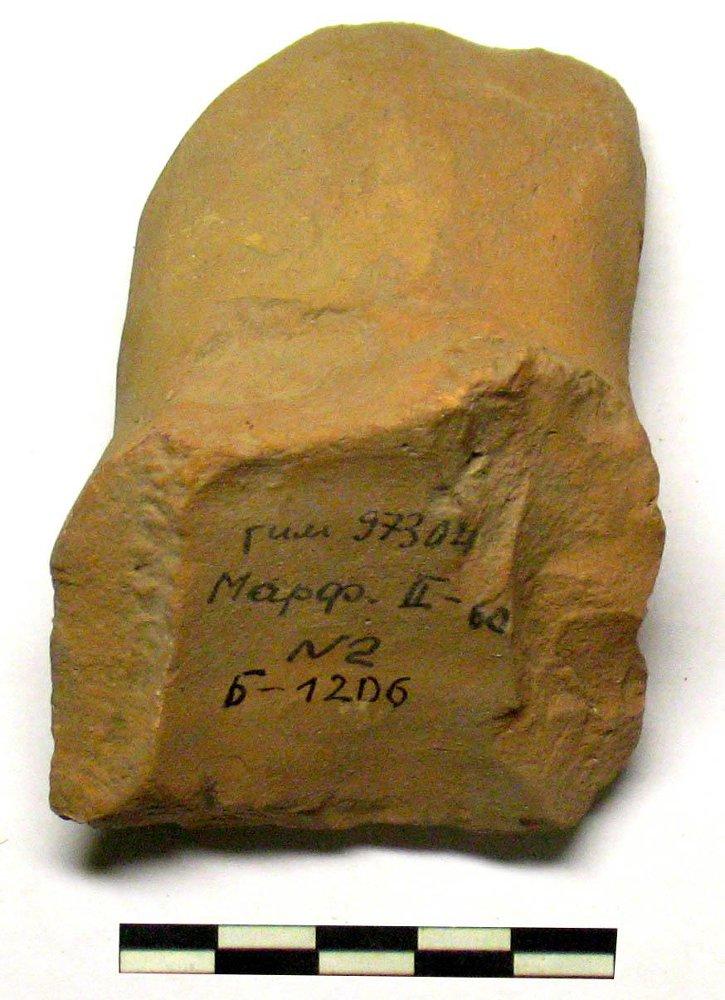 гим 97304
Марф. II-60
N2
Б-1206